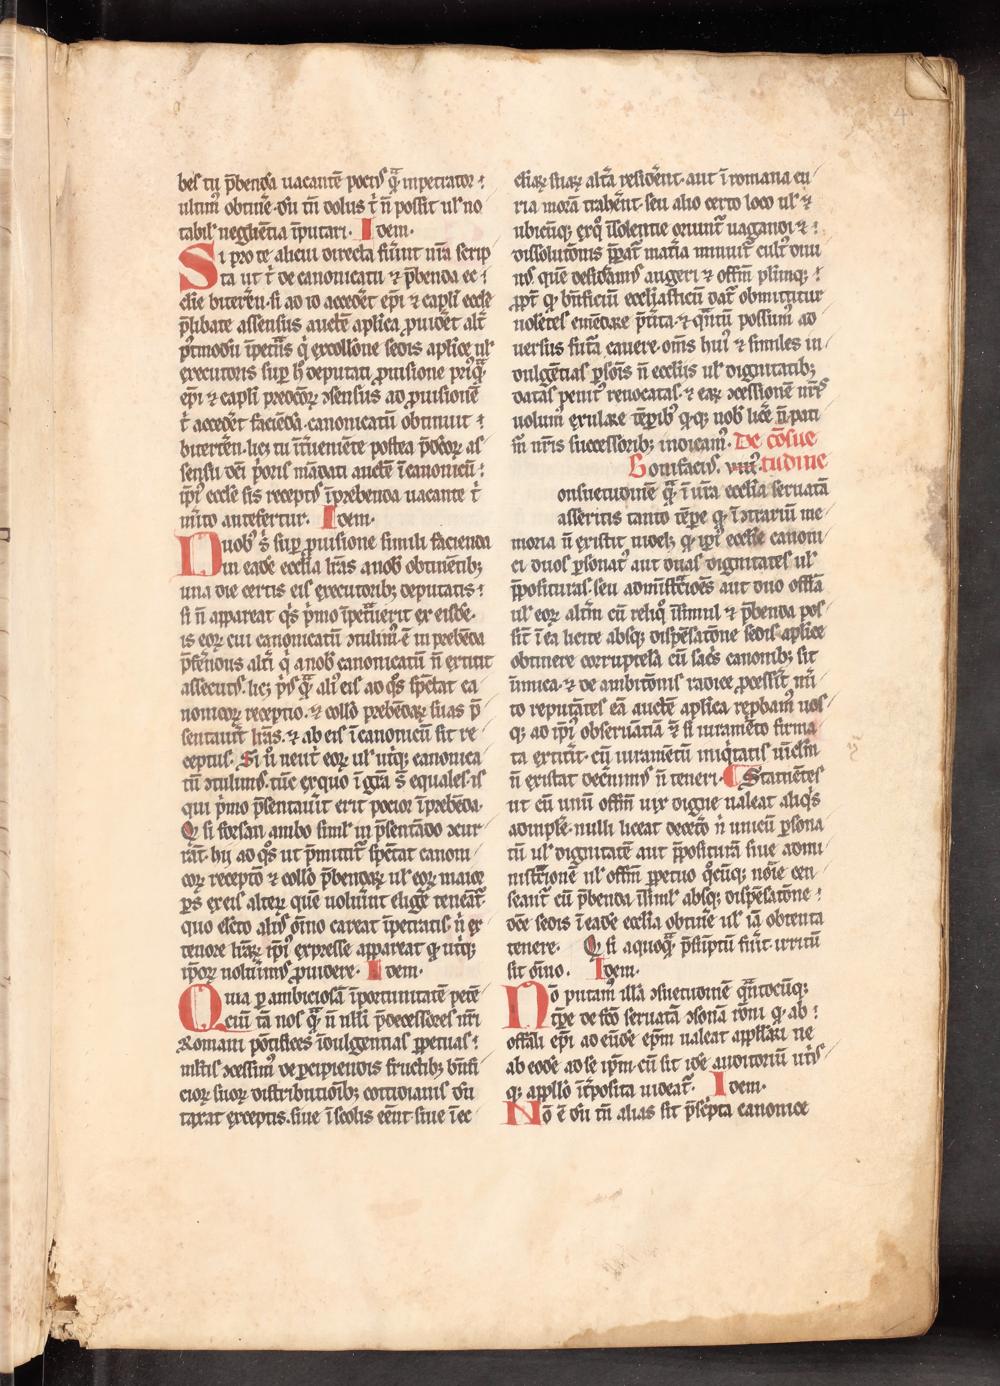 bes tu p̄benda uacantē pocis q̄ impetrator
ultim̄ obtine. dū tn̄ dolus t̄ n̄ possit ul' no
tabil' negligētia īputari. Idem.
Si pro te alicui directa fuerint nr̄a scrip
ta ut t̄ de canonicatu ⁊ p̄benda ec
clie biterēn. si ad id accedet ep̄i ⁊ capl̄i eccl̄e
p̄libate assensus auctē aplica ꝓuidet alt̄
executoris suꝑ h̄ deputati ꝓuisione
ep̄i ⁊ capl̄i predcōꝝ ↄsensus ad ꝓuisionē
t̄ accedet faciēda. canonicatū obtinuit
biterrēn. licꝫ tu īt̄ueniēte postea p̄dcōꝝ as
sensu dc̄i p̄oris mādati auctē ī canonicū
ip̄i eccl̄e sis recepts ī prebenda uacante t̄
mīto antefertur. Idem.
Duob' s̄ suꝑ ꝓuisione simili facienda
in eadē eccl̄ia lr̄as a nob' obtinētibꝫ
una die certis eis executoribꝫ deputatis
si n̄ appareat q̄s p̄mo īpetrauerit ex eisdē.
is eoꝝ cui canonicatū ↄtulim' ē in prebēda
p̄ferēdus alt̄i q̄ a nob' canonicatū n̄ extitit
assecuts. licꝫ p̄s q̄ ali' eis ad q̄s spectat ca
nonicoꝝ receptio. ⁊ collō prebēdaꝝ suas p̄
sentauit lr̄as. ⁊ ab eis ī canonicū sit re
ceptus. Si ū neut̄ eoꝝ ul' ut̄qꝫ canonica
tū ↄtulim'. tūc ex quo ī gr̄a s̄ equales. is
qui p̄mo p̄sentauit erit pocior ī prebēda.
Q̄ si forsan ambo simul' in p̄sentādo ↄcur
rāt. hii ad q̄s ut p̄mittit' spectat canoni
coꝝ receptō ⁊ collō p̄bendaꝝ ul' eoꝝ maior
ps̄ ex eis alteꝝ quē voluint eligē teneāt.
quo electo alius ōino careat īpetratis. n̄ ex
tenore lr̄aꝝ ip̄i expresse appareat ꝙ ut̄qꝫ
ip̄oꝝ noluim' ꝓuidere. Idem.
Quia ꝑ ambiciosā īportunitatē petē
ciū tā nos q̄ n̄ nulli p̄decessores nr̄i
Romani pōtifices īdulgentias ꝑpetuas
mltis ↄcessim' de percipiendis fructibꝫ bn̄fi
cioꝝ suoꝝ distributiōibꝫ cottidianis dū
taxat exceptis. siue ī scolis eēnt. siue ī ec
cl̄iaꝝ suaꝝ alt̄a resident. aut ī romana cu
ria morā trahent. seu alio certo loco ul'
ubicūqꝫ ex q̄ īsolentie oriunt' uagandi ⁊
dissolutōnis ꝑat̄ mat̄ia minuit' cult' diui
n' quē desid̄am' augeri ⁊ offm̄ pl̄imqꝫ
ꝓpt̄ qꝫ bn̄ficiū eccl̄iasticū dat' obmittitur
nolētes emēdare p̄t̄ita. ⁊ q̄ntū possum' ad
versus fut̄a cauere. om̄s hui' ⁊ similes in
dulgētias ꝑsōis n̄ eccl̄iis ul' dignitatibꝫ
datas penit' reuocatas. ⁊ eaꝝ ↄcessionē
volum' exulare tēꝑibꝫ nob' licꝫ n̄ pati
m̄ nr̄is successoribꝫ indicam'. De cōsue
Bonifacius. viii. tudine
onsuetudinē q̄ ī ur̄a eccl̄ia seruatā
asseritis tanto tēꝑe ꝙ ī ↄtrariū me
moria n̄ existit uidelꝫ ꝙ ip̄i eccl̄ie canoni
ci duos ꝑsonat' aut duas dignitates ul'
p̄posituras. seu admistrac̄iōes aut duo offīa
ul' eoꝝ alt̄m cū reliq̄ īsimul ⁊ p̄benda pos
sīt ī ea licite absqꝫ dispēsatōne sedis aplice
obtinere corruptelā cū sac̄s canonibꝫ sit
inimica. ⁊ de ambitōnis radice ꝓcesserit mī
to reputātes eā auctē aplica repbam' uos
qꝫ ad ip̄i' obseruātiā etsi iuramēto firma
ta extit̄it. cū iuramētū iniq̄tatis uīcl̄m
n̄ existat decēnim' n̄ teneri. Statuētes
ut cū unū offm̄ uix digne ualeat aliq̄s
adimpl'e. nulli liceat decet̄o n̄ unicū ꝑsona
tū ul' dignitatē aut p̄positurā siue admi
nistrōnē ul' offm̄ ꝑpetuo q̄cūqꝫ nōie cen
seant' cū p̄benda īsimul' absqꝫ dispēsatōne
dc̄e sedis ī eadē eccl̄ia obtinē ul' iā obtenta
tenere. Q̄ si a quoq̄ p̄sūptū fuit irritū
sit ōino. Idem.
Nō putam' illā ↄsuetudinē q̄ntocūqꝫ
tꝑe de fcō seruatā ↄsonā rōni ꝙ ab
offāli ep̄i ad eūdē ep̄m ualeat appellari ne
ab eodē ad se ip̄m. cū sit idē auditoriū ut̄s
qꝫ appllō īt̄posita videat'. Idem.
Nō ē dū tn̄ alias sit p̄sc̄pta canonice